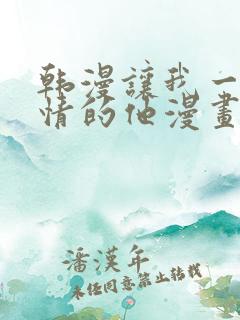 韩漫讓我一
情的他漫畫
潘漢年
未经同意禁止转载